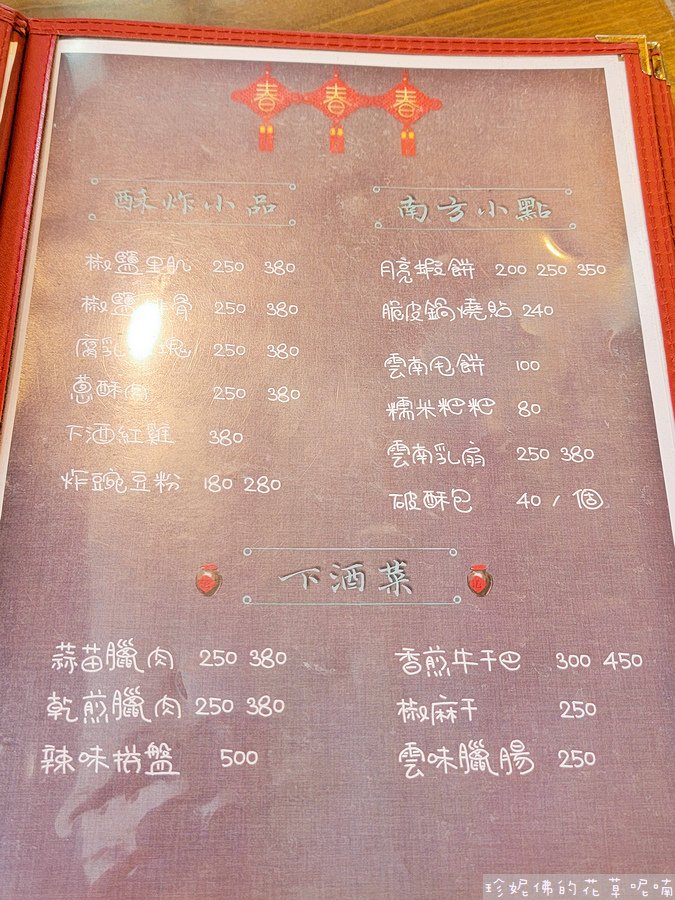 春 春 春
酥炸小品
椒鹽里肌 250 380
椒鹽排骨 250 380
腐乳 塊 250 380
蔥酥 250 380
下酒紅雞 380
炸豌豆粉 180 280
南方小點
月亮蝦餅 200 250 350
脆皮鍋燒貼 240
雲南甩餅 100
糯米粑粑 80
雲南乳扇 250 380
破酥包 40 / 個
下酒菜
蒜苗臘肉 250 380
乾煎臘肉 250 380
辣味拼盤 500
香煎牛干巴 300 450
椒麻干 250
雲味臘腸 250
珍妮佛的花草呢喃